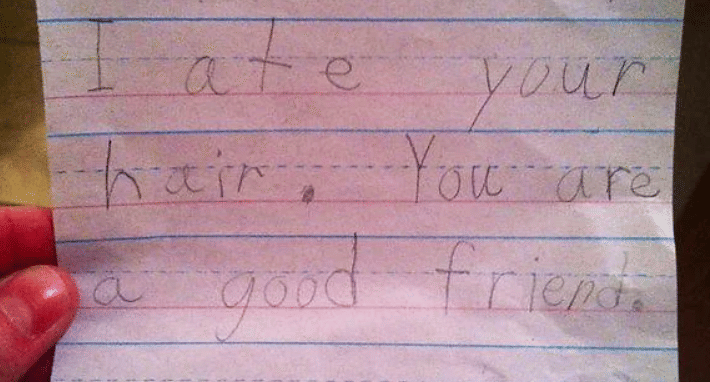 I ate your
hair. You are
a good friend.